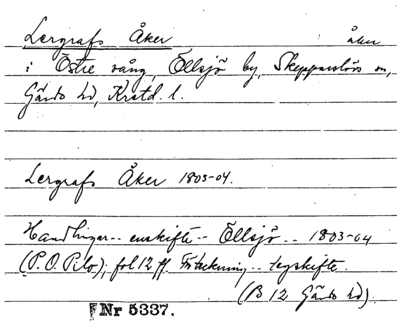 Lergrafs Åker åker
i Östre vång, Öllsjö by, Skepparslövs sn,
Gärds hd, Krstd. l.
Lergrafs Åker 1803-04.
Handlingar.. enskifte.. Öllsjö.. 1803-04
(P. O. Pilo); fol 12 ff. Förteckning.. tegskifte.
(B 12 Gärds hd).
Nr 5337.